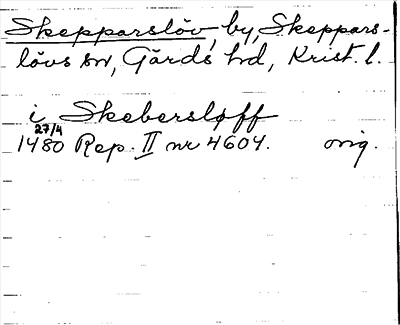 Skepparslöv, by, Skeppars-
lövs sn, Gärds hd, Krist. l.
i Skebersløff
27/4
1480 Rep. II nr 4604. orig.